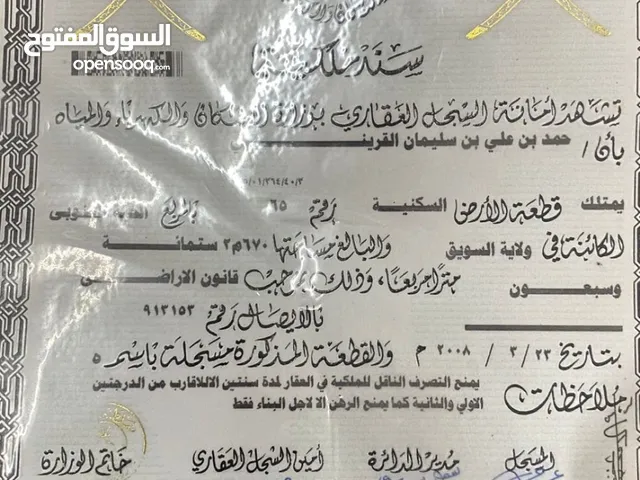 السوق المفتوح
opensooq.com
سند ملكية
تشهد أمانة السجل العقاري بوزارة الإسكان والكهرباء والمياه
بأن / حمد بن علي بن سليمان القريني
٠١/٢٦٤/٤٠/٣
يمتلك قطعة الأرض السكنية رقم ٦٥ بالمربع
الكائنة في ولاية السويق والبالغ مساحتها ٦٧٠م٢ ستمائة
وسبعون مترا مربعا، وذلك بموجب قانون الاراضي
بالايصال رقم ٩١٣١٥٣
بتاريخ ٢٣ / ٣ / ٢٠٠٨ م والقطعة المذكورة مسجلة باسمه
ملاحظات يمنع التصرف الناقل للملكية في العقار لمدة سنتين الاللاقارب من الدرجتين
الاولي والثانية كما يمنع الرهن الا لاجل البناء فقط
المسجل مدير الدائرة أمين السجل العقاري خاتم الوزارة